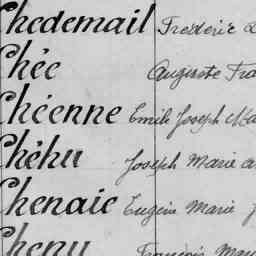 Chedemail Frédéric
Chée Auguste Fra
Chéenne Emile Joseph Ma
Chéhu Joseph Marie
Chenaie Eugène Marie
Chenu François